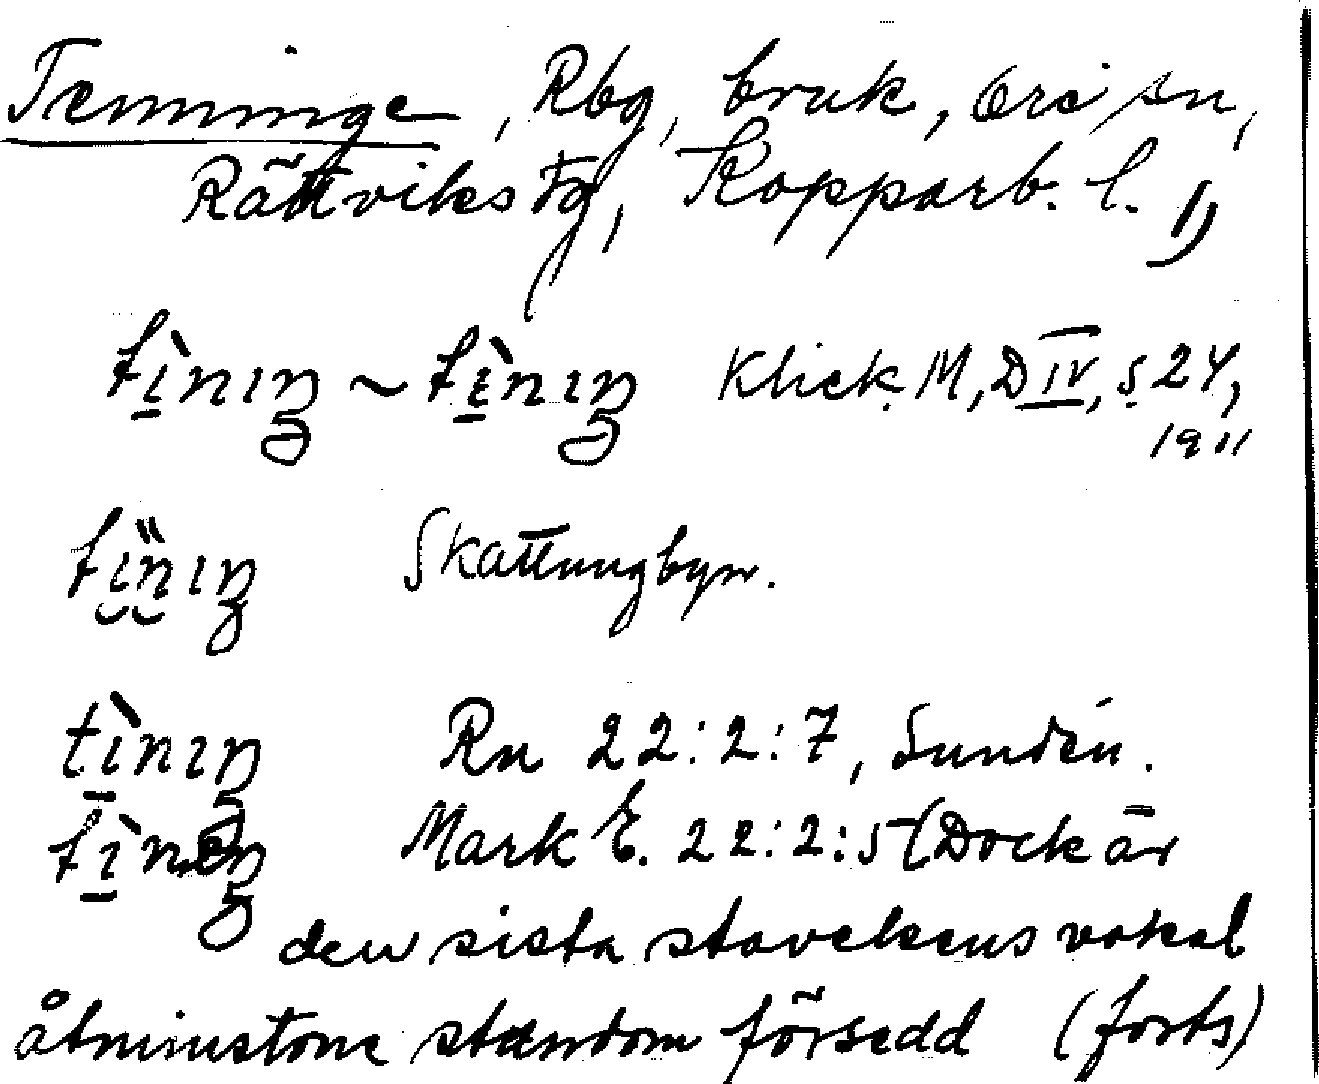 Tenninge, Rbg, bruk, Ore sn,
Rättviks tg, Kopparb. l. 1)
tìnıŋ ~ tɛ̀nıŋ Klick. M, D IV, s. 24,
1911
tı̤n̈ıŋ Skattungbyn.
tìnıŋ Rn 22:2:7, Sundén.
tìneŋ Mark E. 22:2:5 (Dock är
den sista stavelsens vokal
åtminstone stundom försedd (forts)